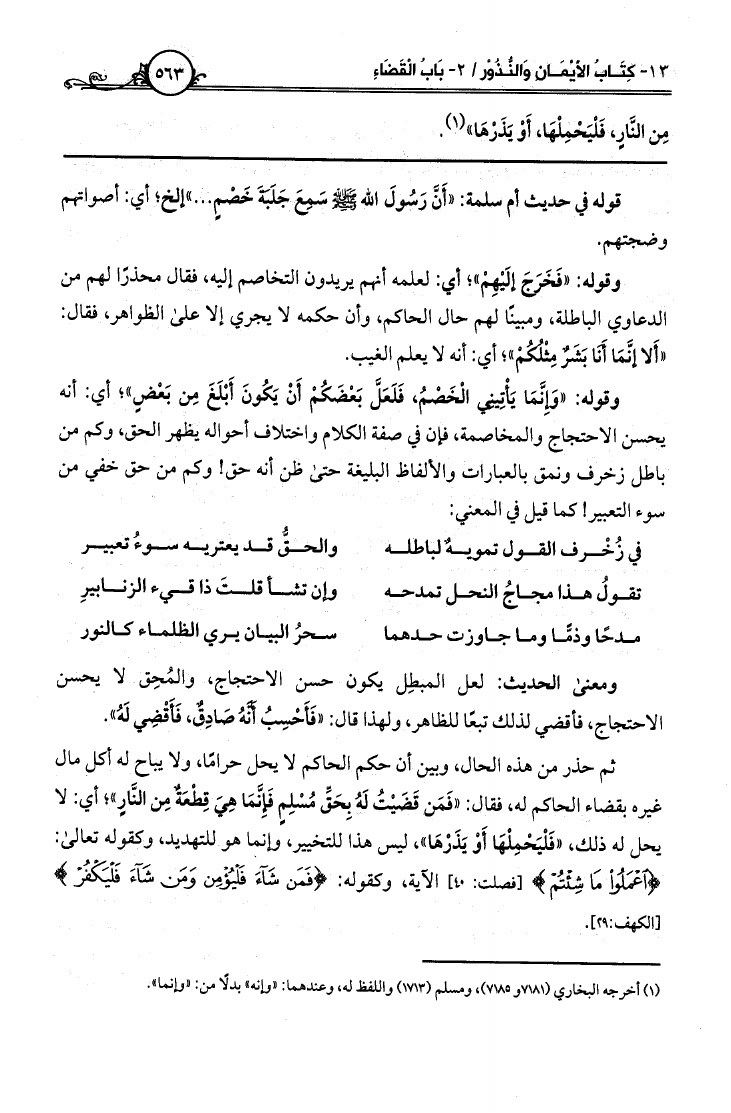 ١٣- كِتَــابُ الأَيْمَـانِ وَالنُّـذُوْرِ / ٢- بَابُ الْقَضَاءِ
٥٦٣
مِن النَّارِ، فَلْيَحْمِلْهَا، أَوْ يَذَرْهَا»(١).
قوله في حديث أم سلمة: «أَنَّ رَسُولَ الله ﷺ سَمِعَ جَلَبَةَ خَصْمٍ...»إلخ؛ أي: أصواتهم
وضجتهم.
وقوله: «فَخَرَجَ إِلَيْهِمْ»؛ أي: لعلمه أنهم يريدون التخاصم إليه، فقال محذرًا لهم من
الدعاوي الباطلة، ومبينًا لهم حال الحاكم، وأن حكمه لا يجري إلا علىٰ الظواهر، فقال:
«أَلا إِنَّمَا أَنَا بَشَرٌ مِثْلُكُمْ»؛ أي: أنه لا يعلم الغيب.
وقوله: «وَإِنَّمَا يَأْتِينِي الْخَصْمُ، فَلَعَلَّ بَعْضَكُمْ أَنْ يَكُونَ أَبْلَغَ مِن بَعْضٍ»؛ أي: أنه
يحسن الاحتجاج والمخاصمة، فإن في صفة الكلام واختلاف أحواله يظهر الحق، وكم من
باطل زخرف ونمق بالعبارات والألفاظ البليغة حتىٰ ظن أنه حق! وكم من حق خفي من
سوء التعبير! كما قيل في المعني:
في زُخْـرف القـول تمويـهٌ لباطلـه والحـقُّ قـد يعتريـه سـوءُ تعبيـر
تقـولُ هـذا مجـاجُ النحـل تمدحـه وإن تشـأ قلـتَ ذا قـيء الزنـابيرِ
مـدحًا وذمًّـا ومـا جـاوزت حـدهما سـحرُ البيـان يـري الظلمـاء كـالنور
ومعنىٰ الحديث: لعل المبطِل يكون حسن الاحتجاج، والمُحِق لا يحسن
الاحتجاج، فأقضي لذلك تبعًا للظاهر، ولهذا قال: «فَأَحْسِبُ أَنَّهُ صَادِقٌ، فَأَقْضِي لَهُ».
ثم حذر من هذه الحال، وبين أن حكم الحاكم لا يحل حرامًا، ولا يباح له أكل مال
غيره بقضاء الحاكم له، فقال: «فَمَن قَضَيْتُ لَهُ بِحَقِّ مُسْلِمٍ فَإِنَّمَا هِيَ قِطْعَةٌ مِن النَّارِ»؛ أي: لا
يحل له ذلك، «فَلْيَحْمِلْهَا أَوْ يَذَرْهَا»، ليس هذا للتخيير، وإنما هو للتهديد، وكقوله تعالىٰ:
﴿ٱعْمَلُوا۟ مَا شِئْتُمْ﴾ [فصلت: ٤٠] الآية، وكقوله: ﴿فَمَن شَآءَ فَلْيُؤْمِن وَمَن شَآءَ فَلْيَكْفُرْ﴾
[الكهف:٢٩].
(١) أخرجه البخاري (٧١٨١و ٧١٨٥)، ومسلم (١٧١٣) واللفظ له، وعندهما: «وإنه» بدلًا من: «وإنما».